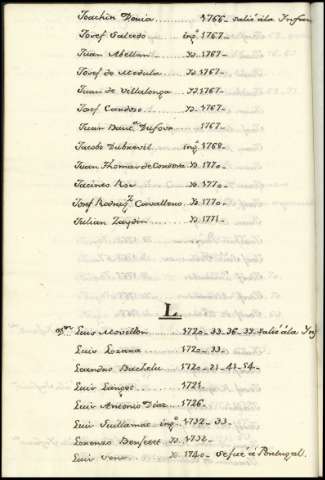 Joachin Denia ........ 1766 - salió á la Ynfan
Josef Salcedo ingº 1767 -
Juan Abellan ........ Yd. 1767 -
Josef de Medula ... Yd. 1767 -
Juan de Villalonga Yd. 1767 -
Josef Cardoso ... Yd. 1767 -
Juan Baut.ta Dufour ... 1767 -
Jacobo Dubrevil ingº 1768 -
Juan Thomas de Cordova Yd. 1770 -
Jacinto ... Yd. 1770 -
Josef Rodrig.z Cavallero Yd. 1770 -
Julian Zaydin ... Yd. 1771 -
L.
Luis Movillon ........ 1720 - 33 - 36 - 37 - salió á la Ynf
Luis Lozana ........ 1720 - 33 -
Leandro Bachelu ... 1720 - 21 - 41 - 54 -
Luis Langot ........ 1721
Luis Antonio Diaz ... 1726 -
Luis Vuillamar ingº 1732 - 33 -
Lorenzo Yd. 1732 -
Luis Yd. 1740 - se fué á Portugal.